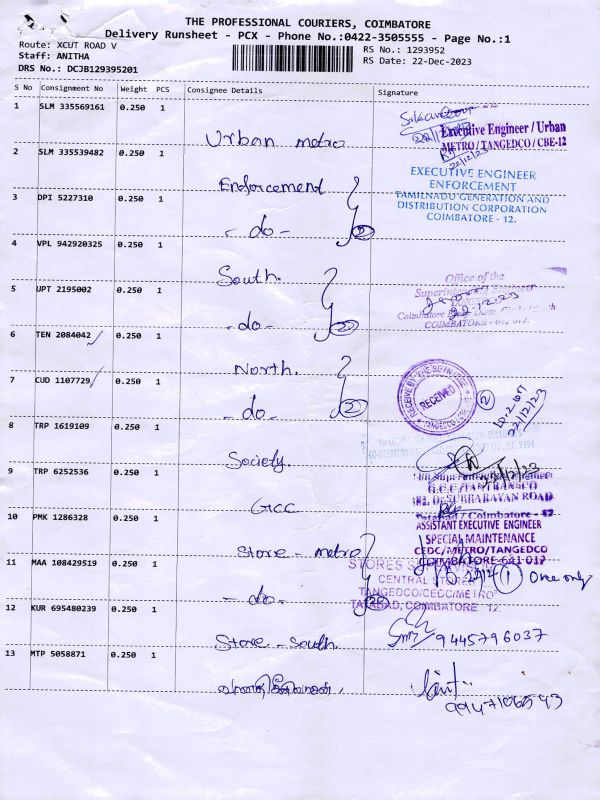 THE PROFESSIONAL COURIERS, COIMBATORE
Delivery Runsheet - PCX - Phone No.:0422-3505555 - Page No.:1
Route: XCUT ROAD V
RS No.: 1293952
Staff: ANITHA
RS Date: 22-Dec-2023
DRS No.: DCJB129395201
S No Consignment No Weight PCS Consignee Details Signature
1 SLM 335569161 0.250 1 Urban metro
22/12/23
Executive Engineer / Urban
METRO / TANGEDCO / CBE-12
22/12/23
2 SLM 335539482 0.250 1 Enforcement
EXECUTIVE ENGINEER
ENFORCEMENT
TAMILNADU GENERATION AND
DISTRIBUTION CORPORATION
COIMBATORE - 12.
3 DPI 5227310 0.250 1 - do - 2
4 VPL 942920325 0.250 1 South.
Office of the
Superintending Engineer
22/12/2023
5 UPT 2195002 0.250 1 - do - 2
6 TEN 2084042 0.250 1 North.
RECEIVED
2
22/12/23
7 CUD 1107729 0.250 1 - do - 2
8 TRP 1619109 0.250 1 Society.
9 TRP 6252536 0.250 1 GCC
G.C.C/TANTRANSCO
182, Dr.SUBBARAYAN ROAD
Tatabad / Coimbatore - 12
10 PMK 1286328 0.250 1 Store - metro
ASSISTANT EXECUTIVE ENGINEER
SPECIAL MAINTENANCE
CEDC/METRO/TANGEDCO
COIMBATORE-641 012
11 MAA 108429519 0.250 1 - do -
STORES
CENTRAL STORES
TANGEDCO/CEDC/METRO
TATABAD, COIMBATORE - 12.
1 One only
12 KUR 695480239 0.250 1 Store - South.
9445796037
13 MTP 5058871 0.250 1